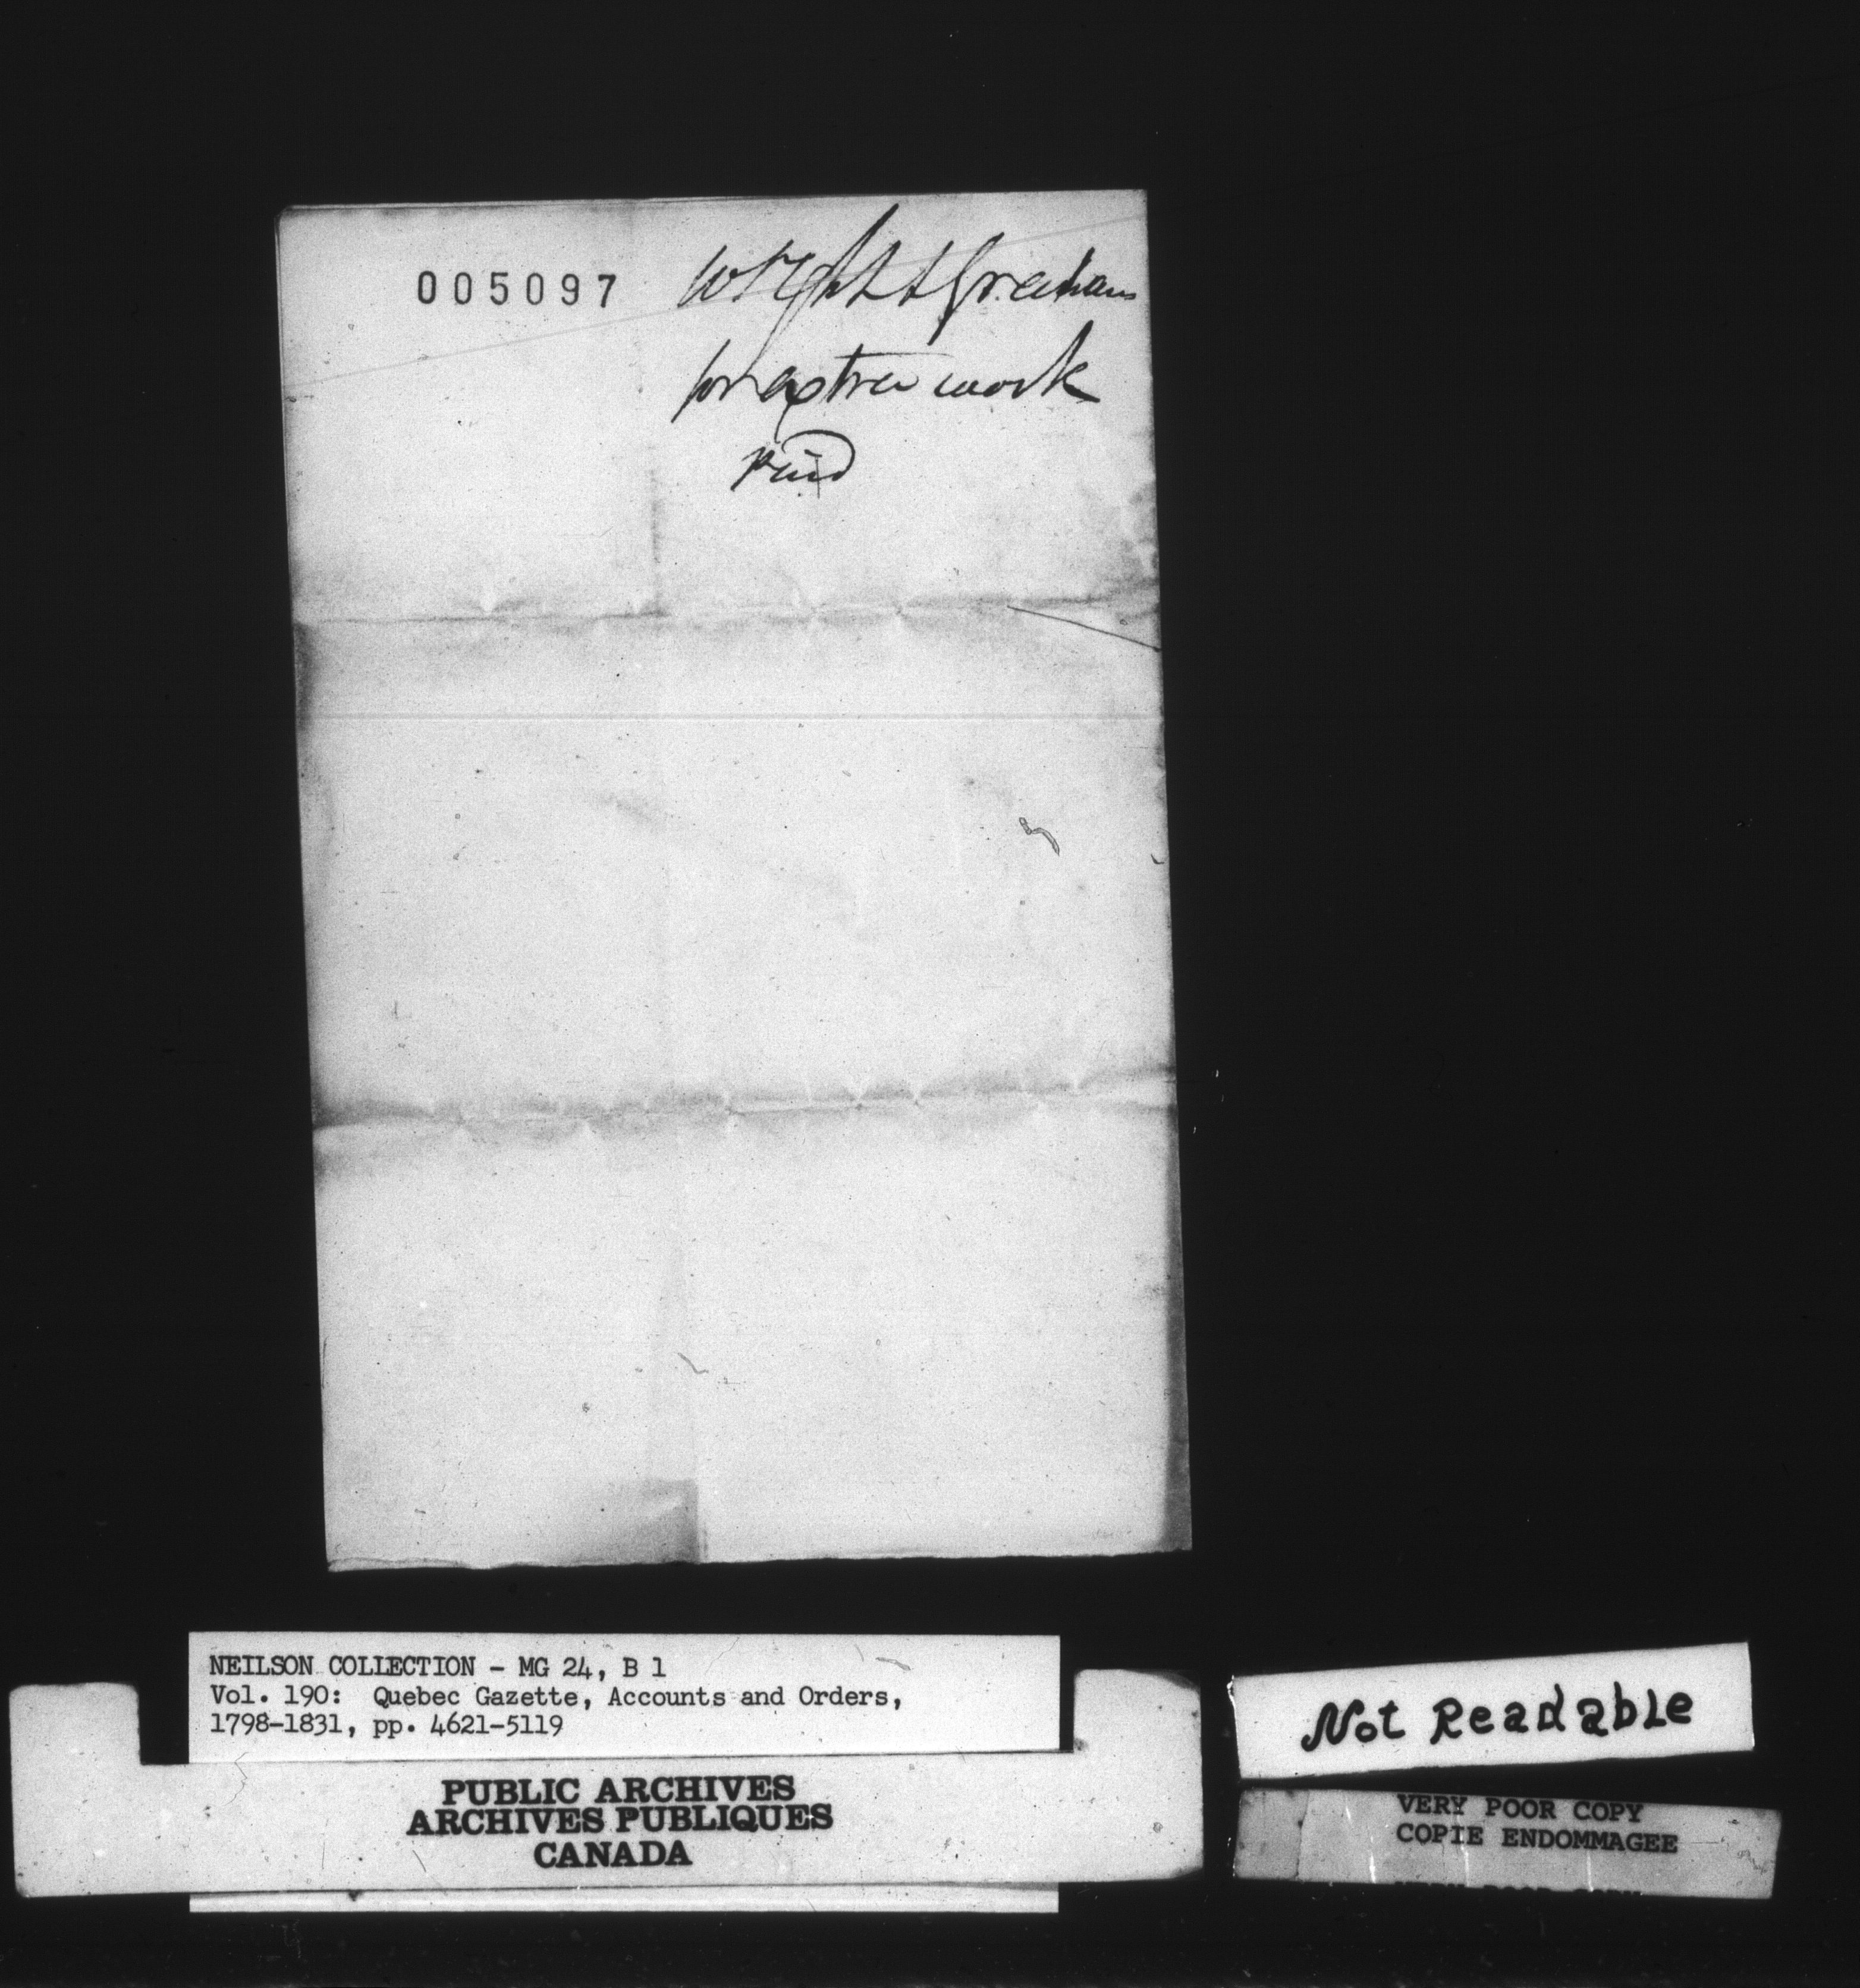 005097
Wright & Graham
for extra work
paid
NEILSON COLLECTION - MG 24, B 1
Vol. 190: Quebec Gazette, Accounts and Orders,
1798-1831, pp. 4621-5119
PUBLIC ARCHIVES
ARCHIVES PUBLIQUES
CANADA
Not Readable
VERY POOR COPY
COPIE ENDOMMAGEE